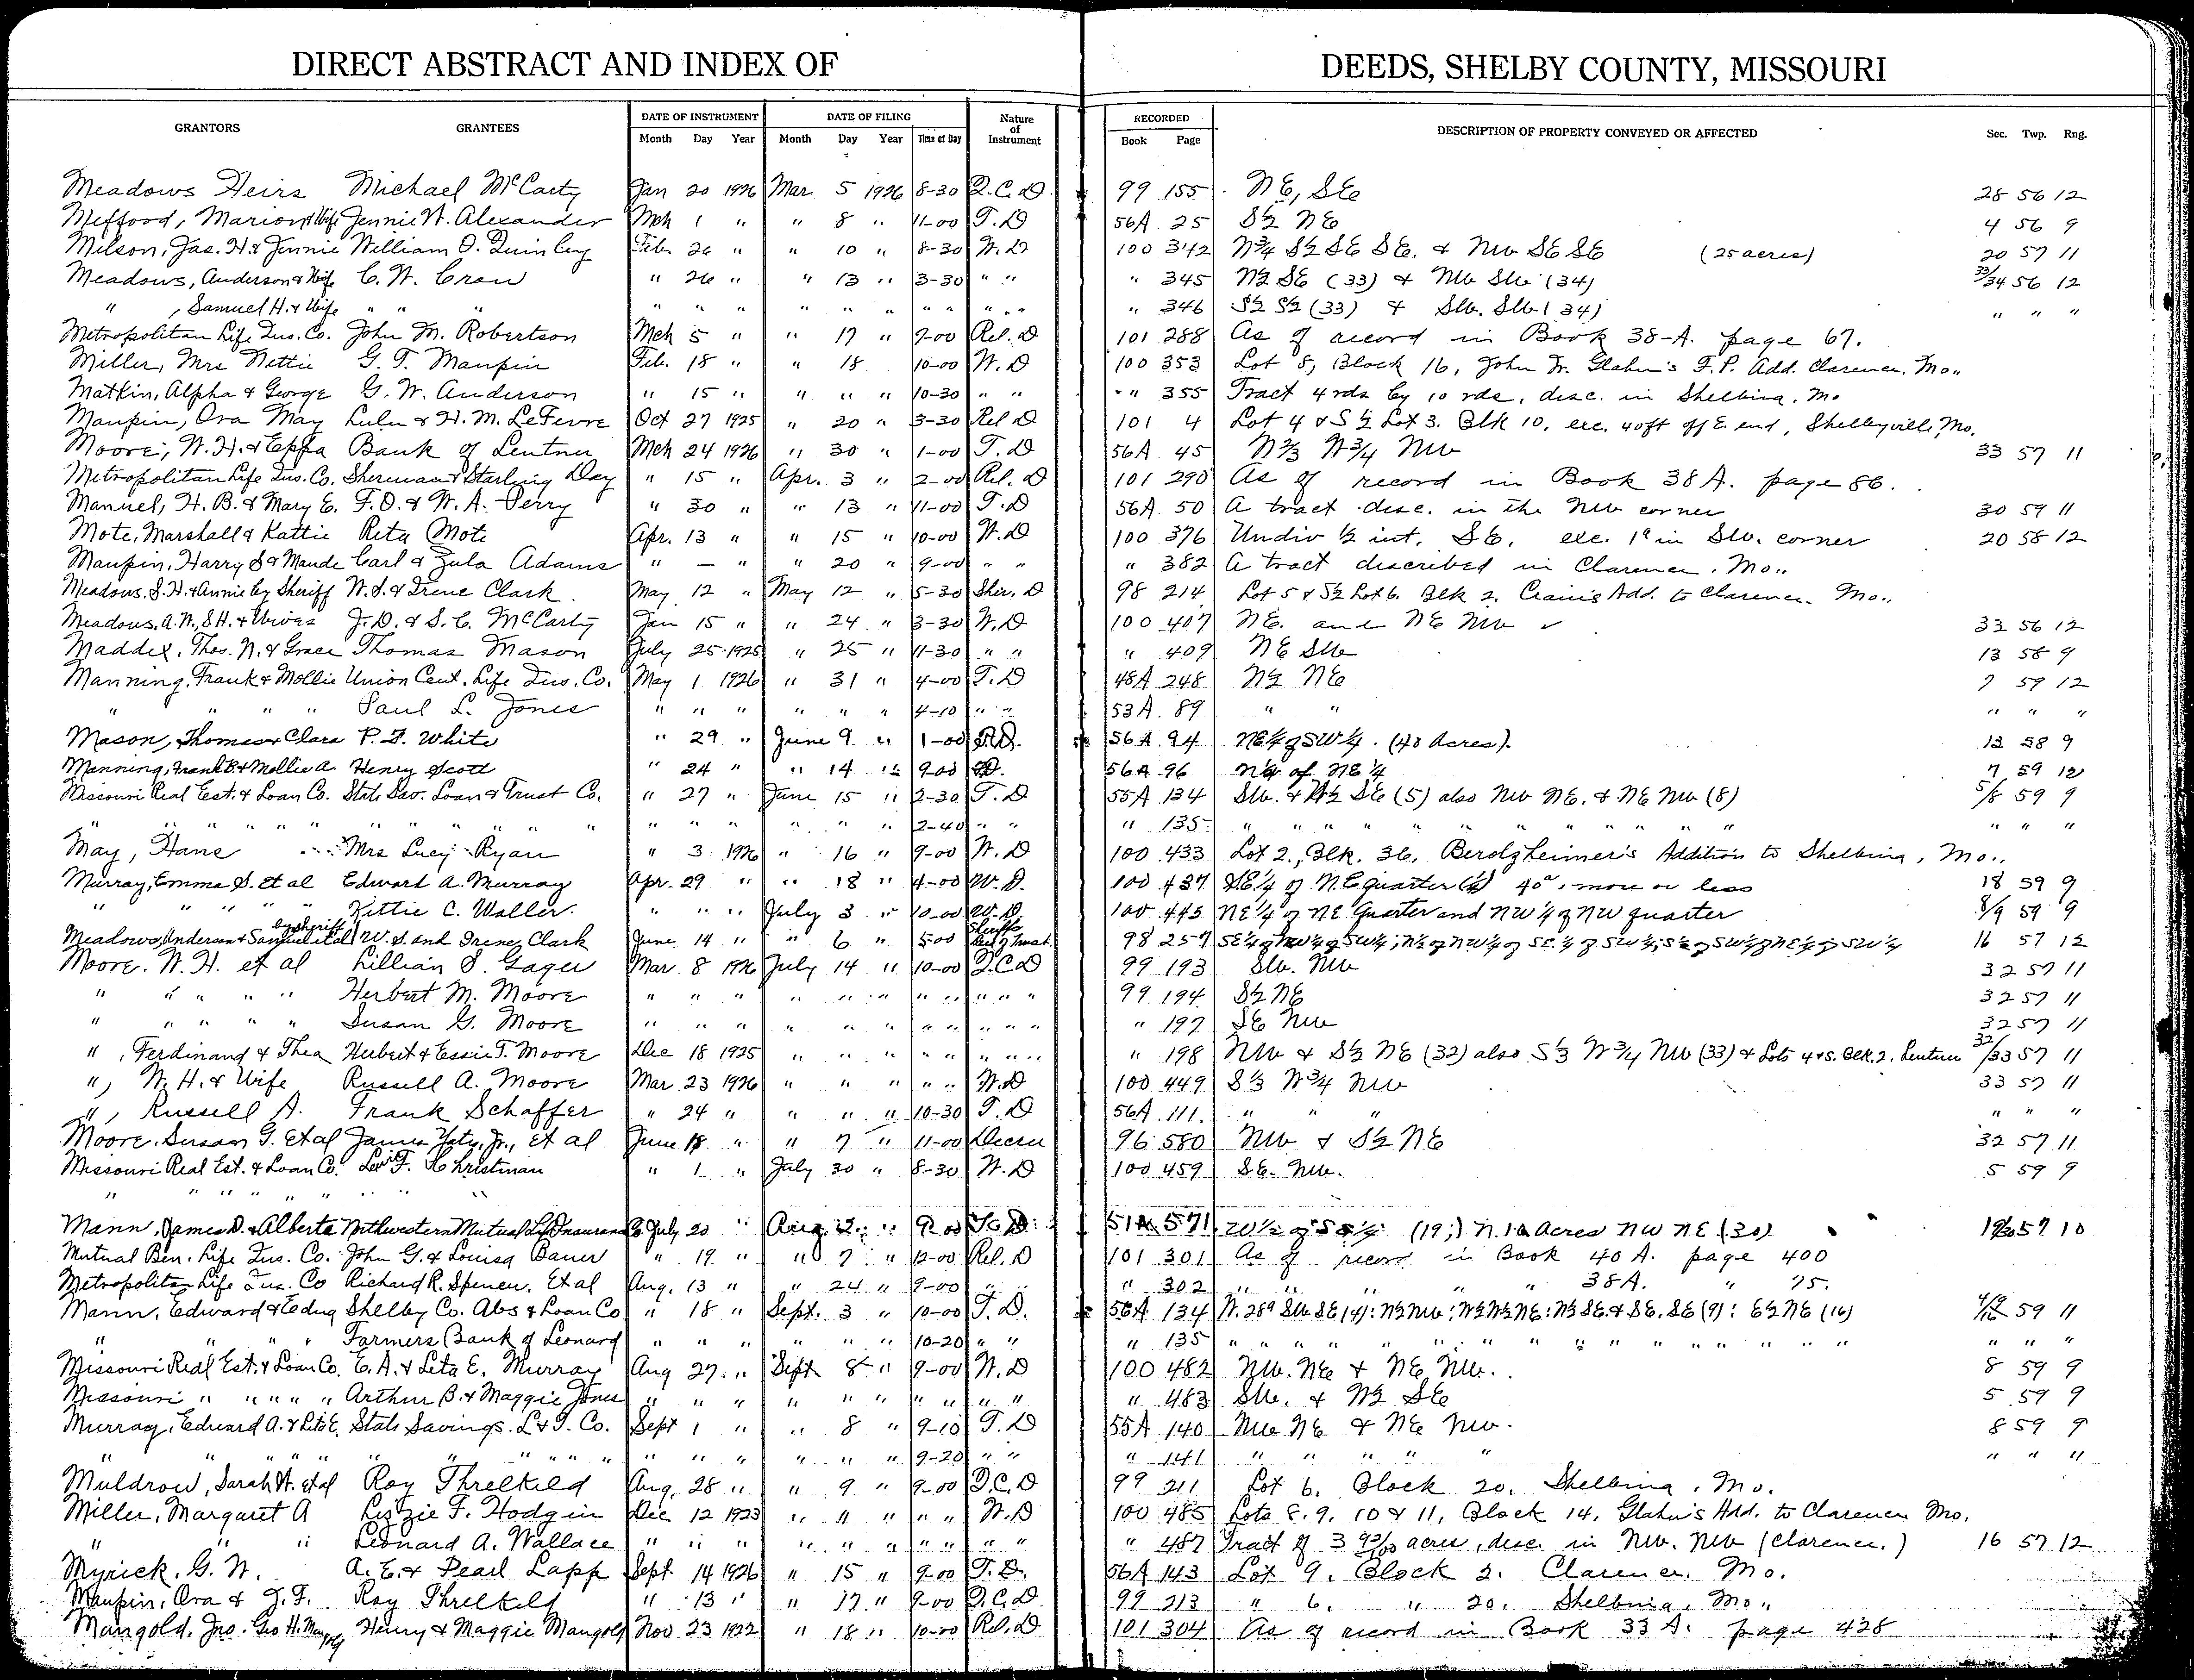 DIRECT ABSTRACT AND INDEX OF DEEDS, SHELBY COUNTY, MISSOURI
GRANTORS GRANTEES DATE OF INSTRUMENT DATE OF FILING Nature of Instrument RECORDED DESCRIPTION OF PROPERTY CONVEYED OR AFFECTED Sec. Twp. Rng.
Month Day Year Month Day Year Time of Day Book Page
Meadows Heirs Michael McCarty Jan 20 1926 Mar 5 1926 8-30 Q.C.D 99 155 NE, SE 28 56 12
Mefford, Marion & Wife Jennie W. Alexander Mch 1 " " 8 " 11-00 T.D 56A 25 S½ NE 4 56 9
Melson, Jas. H. & Jennie William O. Quinley Feb. 26 " " 10 " 8-30 W.D 100 342 N¾ S½ SE SE. & NW SE SE (25 acres) 20 57 11
Meadows, Anderson & Wife C. W. Crow " 26 " " 13 " 3-30 " " " 345 N½ SE (33) & NW SW (34) 33/34 56 12
" , Samuel H. & Wife " " " " " " " " " " " " " 346 S½ S½ (33) & SW. SW (34) " " "
Metropolitan Life Ins. Co. John M. Robertson Mch 5 " " 17 " 9-00 Rel. D 101 288 As of record in Book 38-A. page 67.
Miller, Mrs Nettie G. T. Maupin Feb. 18 " " 18 10-00 W. D 100 353 Lot 8, Block 16, John Fr. Glahn's F.P. Add. Clarence, Mo..
Matkin, Alpha & George G. W. Anderson " 15 " " " " 10-30 " " " 355 Tract 4 rds by 10 rds, desc. in Shelbina. Mo
Maupin, Ora May Lulu & H. M. LeFevre Oct 27 1925 " 20 " 3-30 Rel D 101 4 Lot 4 & S½ Lot 3. Blk 10, exc. 40ft off E. end, Shelbyville, Mo.
Moore, W. H. & Eppa Bank of Lentner Mch 24 1926 " 30 " 1-00 T. D 56A 45 N⅔ W¾ NW 33 57 11
Metropolitan Life Ins. Co. Sherman & Starling Day " 15 " Apr. 3 " 2-00 Rel. D 101 290 As of record in Book 38 A. page 86.
Manuel, H. B. & Mary E. F. O. & W. A. Perry " 30 " " 13 " 11-00 T. D 56A 50 A tract desc. in the NW corner 30 59 11
Mote, Marshall & Kattie Reta Mote Apr. 13 " " 15 " 10-00 W. D 100 376 Undiv ½ int. SE, exc. 1ª in SW. corner 20 58 12
Maupin, Harry S & Maude Carl & Zula Adams " — " " 20 " 9-00 " " " 382 A tract described in Clarence, Mo..
Meadows. S. H. & Annie by Sheriff W. S. & Irene Clark May 12 " May 12 " 5-30 Sher. D 98 214 Lot 5 & S½ Lot 6. Blk 2. Add. to Clarence. Mo..
Meadows. A. W., S H. & Wives J. D. & S. C. McCarty Jan 15 " " 24 " 3-30 W. D 100 407 NE. and NE NW 33 56 12
Maddex, Thos. N. & Grace Thomas Mason July 25 1925 " 25 " 11-30 " " " 409 NE SW 13 58 9
Manning, Frank & Mollie Union Cent. Life Ins. Co. May 1 1926 " 31 " 4-00 T. D 48A 248 N½ NE 7 59 12
" " " " Paul L. Jones " " " " " " 4-10 " " 53A 89 " " " " "
Mason, Thomas & Clara P. F. White " 29 " June 9 " 1-00 56A 94 NE¼ of SW¼. (40 Acres). 13 58 9
Manning, Frank B. & Mollie A. Henry Scott " 24 " " 14 " 9-00 56A 96 of NE ¼ 7 59 12
Missouri Real Est. & Loan Co. State Sav. Loan & Trust Co. " 27 " June 15 " 2-30 T. D 55A 134 SW. & W½ SE (5) also NW NE. & NE NW (8) 5/8 59 9
" " " " " " " " " " " " " " " " " 2-40 " " " 135 " " " " " " " " " " " " "
May, Hane Mrs Lucy Ryan " 3 1926 " 16 " 9-00 W. D 100 433 Lot 2., Blk. 36, Berolzheimer's Addition to Shelbina, Mo..
Murray, Emma S. et al Edward A. Murray Apr. 29 " " 18 " 4-00 W. D. 100 437 SE¼ of N.E quarter (¼) 40ª, more or less 18 59 9
" " " " Kittie C. Waller. " " " July 3 " 10-00 W. D. 100 445 NE ¼ of NE Quarter and NW ¼ of NW quarter 8/9 59 9
Meadows, Anderson & Samuel et al by sheriff W. S. and Irene Clark June 14 " " 6 " 5 00 Sheriff's Deed of Trust 98 257 SE¼ of NW¼ of SW¼; N½ of NW¼ of SE ¼ of SW¼; S½ of SW¼ of NE¼ of SW¼ 16 57 12
Moore. W. H. et al Lillian S. Gager Mar 8 1926 July 14 " 10-00 Q.C.D 99 193 SW. NW 32 57 11
" " " " " Herbert M. Moore " " " " " " " " " " " 99 194 S½ NE 32 57 11
" " " " " Susan G. Moore " " " " " " " " " " " " 197 SE NW 32 57 11
" , Ferdinand & Thea Herbert & Essie T. Moore Dec 18 1925 " " " " " " " " " 198 NW & S½ NE (32) also S⅓ W¾ NW (33) & Lots 4 & 5. Blk. 2. Lentner 32/33 57 11
" , W. H. & Wife Russell A. Moore Mar 23 1926 " " " " " W. D 100 449 S⅓ W¾ NW 33 57 11
" , Russell A. Frank Schaffer " 24 " " " " 10-30 T. D 56A 111 " " " " " "
Moore, Susan G. Et al James Jr., et al June 18 " " 7 " 11-00 Decree 96 580 NW & S½ NE 32 57 11
Missouri Real Est. & Loan Co. Levi F. Christman " 1 " July 30 " 8-30 W. D 100 459 SE. NW. 5 59 9
" " " " " " " "
Mann, James D. & Alberta Northwestern Mutual Life Insurance Co. July 20 " Aug 2 " 9 00 T. D. 51A 571 W½ of SE¼ (19;) N. 10 Acres NW NE (30) 19/30 57 10
Mutual Ben. Life Ins. Co. John G. & Louisa Bauer " 19 " " 7 " 12-00 Rel. D 101 301 As of record in Book 40 A. page 400
Metropolitan Life Ins. Co Richard R. Spencer, Et al Aug. 13 " " 24 " 9-00 " " " 302 " " " " " 38A. " 75.
Mann, Edward & Edna Shelby Co. Abs & Loan Co " 18 " Sept. 3 " 10-00 T. D. 56A 134 N. 28ª SW SE (4): N½ NW; W½ NE: N½ SE. & SE. SE (9): E½ NE (16) 59 11
" " " " Farmers Bank of Leonard " " " " " " 10-20 " " " 135 " " " " " " " " " " " " " " " " " "
Missouri Real Est. & Loan Co. E. A. & Leta E. Murray Aug 27 " Sept 8 " 9-00 W. D 100 482 NW. NE & NE NW. 8 59 9
Missouri " " " " " Arthur B. & Maggie Jones " " " " " " " " " " 483 SW. & W½ SE 5 59 9
Murray, Edward A. & Leta E. State Savings. L & T. Co. Sept 1 " " 8 " 9-10 T. D 55A 140 NW NE & NE NW. 8 59 9
" " " " " " " " " " " " " 9-20 " " " 141 " " " " " " " "
Muldrow, Sarah H. et al Roy Threlkeld Aug. 28 " " 9 " 9-00 Q.C.D 99 211 Lot 6. Block 20. Shelbina, Mo.
Miller, Margaret A Lizzie F. Hodgin Dec 12 1923 " 11 " " " W. D 100 485 Lots 8. 9. 10 & 11, Block 14, Glahn's Add. to Clarence Mo.
" " " Leonard A. Wallace " " " " " " " " " " " 487 Tract of 3 acres, desc. in NW. NW (Clarence.) 16 57 12
Myrick, G. W. A. E. & Pearl Lapp Sept. 14 1926 " 15 " 9-00 T. D. 56A 143 Lot 9, Block 2. Clarence. Mo.
Maupin, Ora & J. F. Roy Threlkeld " 13 " " 17 " 9-00 Q.C.D 99 213 " 6. " 20. Shelbina, Mo..
Mangold, Jno. Geo H. Henry & Maggie Mangold Nov. 23 1922 " 18 " 10-00 Rel. D 101 304 As of record in Book 33 A. page 428